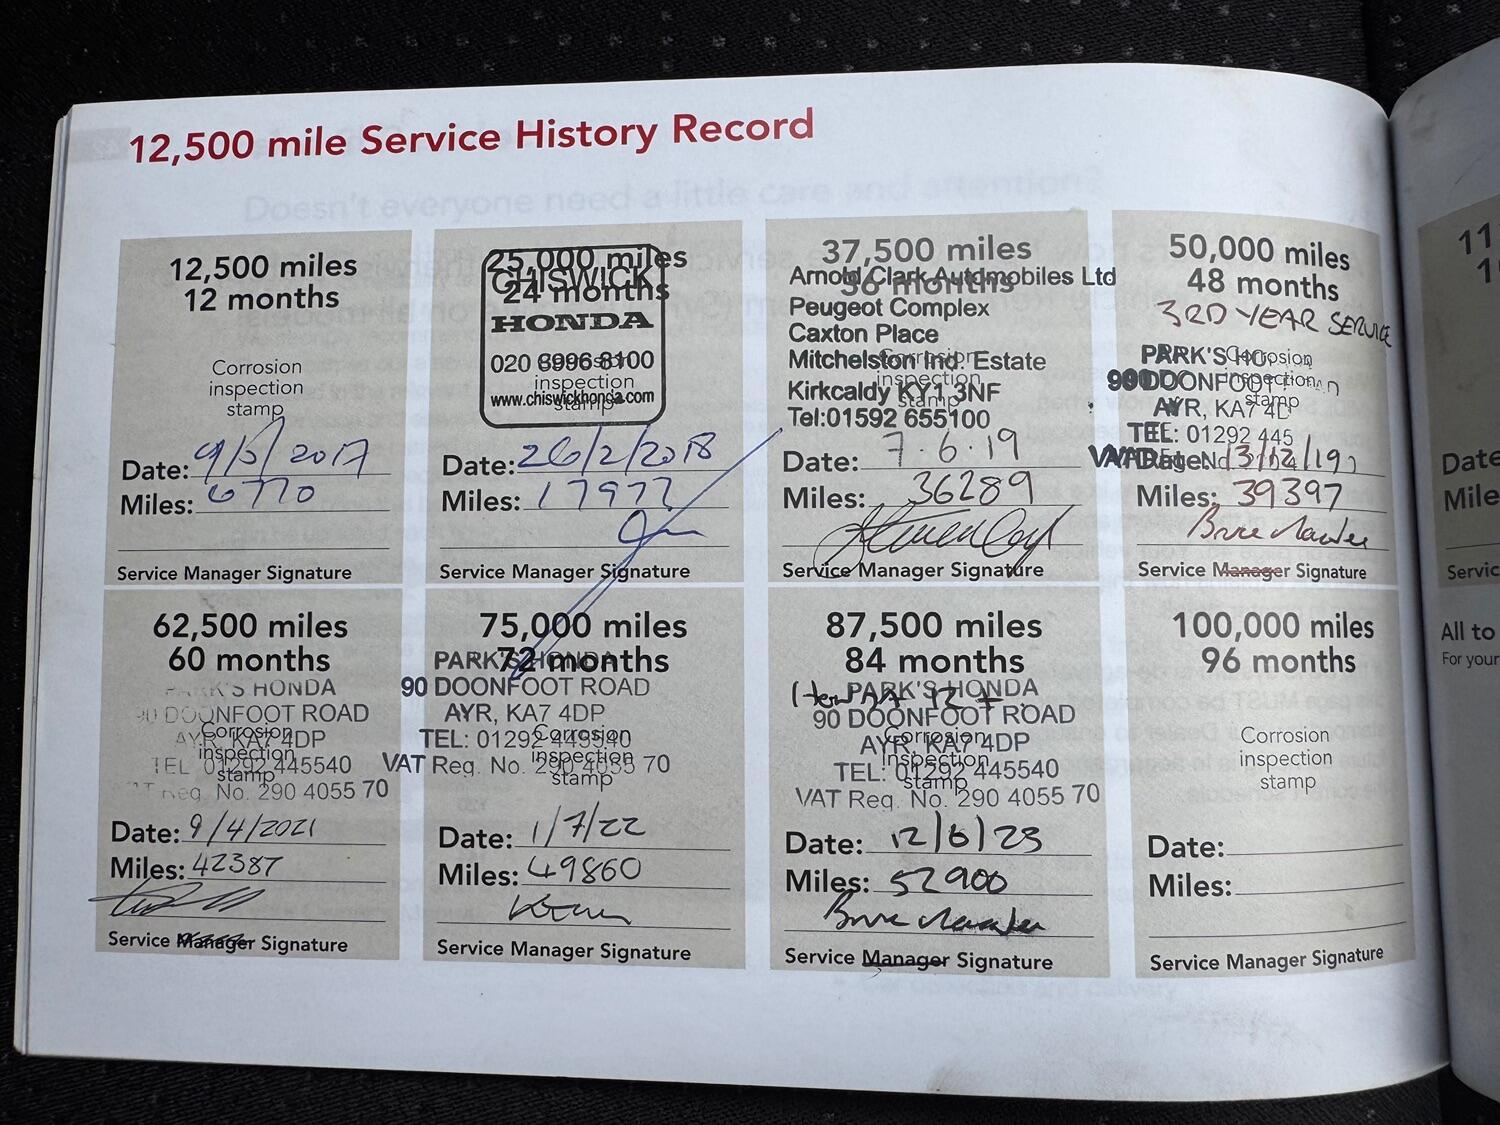 12,500 mile Service History Record
12,500 miles
12 months
Corrosion
inspection
stamp
Date: 9/5/2017
Miles: 6770
Service Manager Signature
25,000 miles
CHISWICK
24 months
HONDA
020 8996 8100
Corrosion
inspection
www.chiswickhonda.com
stamp
Date: 26/2/2018
Miles: 17977
Service Manager Signature
37,500 miles
Arnold Clark Automobiles Ltd
36 months
Peugeot Complex
Caxton Place
Mitchelston Ind. Estate
Corrosion
inspection
Kirkcaldy KY1 3NF
stamp
Tel:01592 655100
Date: 7.6.19
Miles: 36289
Service Manager Signature
50,000 miles
48 months
3RD YEAR SERVICE
PARK'S
Corrosion
90 DOONFOOT
inspection
stamp
AYR, KA7 4D
TEL: 01292 445
Date: 13/12/19
Miles: 39397
Service Manager Signature
62,500 miles
60 months
PARK'S HONDA
90 DOONFOOT ROAD
Corrosion
AYR, KA7 4DP
inspection
TEL 01292 445540
stamp
Reg. No. 290 4055 70
Date: 9/4/2021
Miles: 42387
Service Manager Signature
75,000 miles
72 months
PARK'S HONDA
90 DOONFOOT ROAD
AYR, KA7 4DP
Corrosion
TEL: 01292 445540
inspection
VAT Reg. No. 290 4055 70
stamp
Date: 1/7/22
Miles: 49860
Service Manager Signature
87,500 miles
84 months
PARK'S HONDA
90 DOONFOOT ROAD
Corrosion
AYR, KA7 4DP
inspection
TEL: 01292 445540
stamp
VAT Reg. No. 290 4055 70
Date: 12/6/23
Miles: 52900
Service Manager Signature
100,000 miles
96 months
Corrosion
inspection
stamp
Date:
Miles:
Service Manager Signature
Date
Mile
Servic
All to
For your